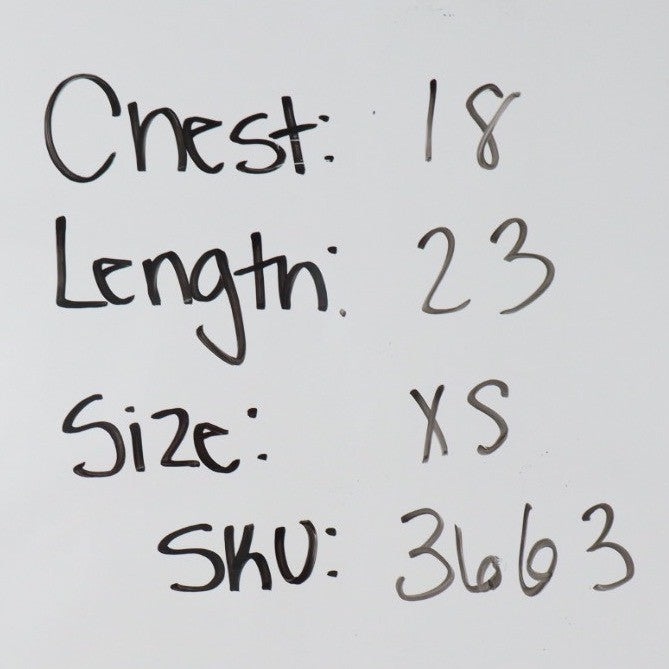 Chest: 18
Length: 23
Size: XS
SKU: 3663